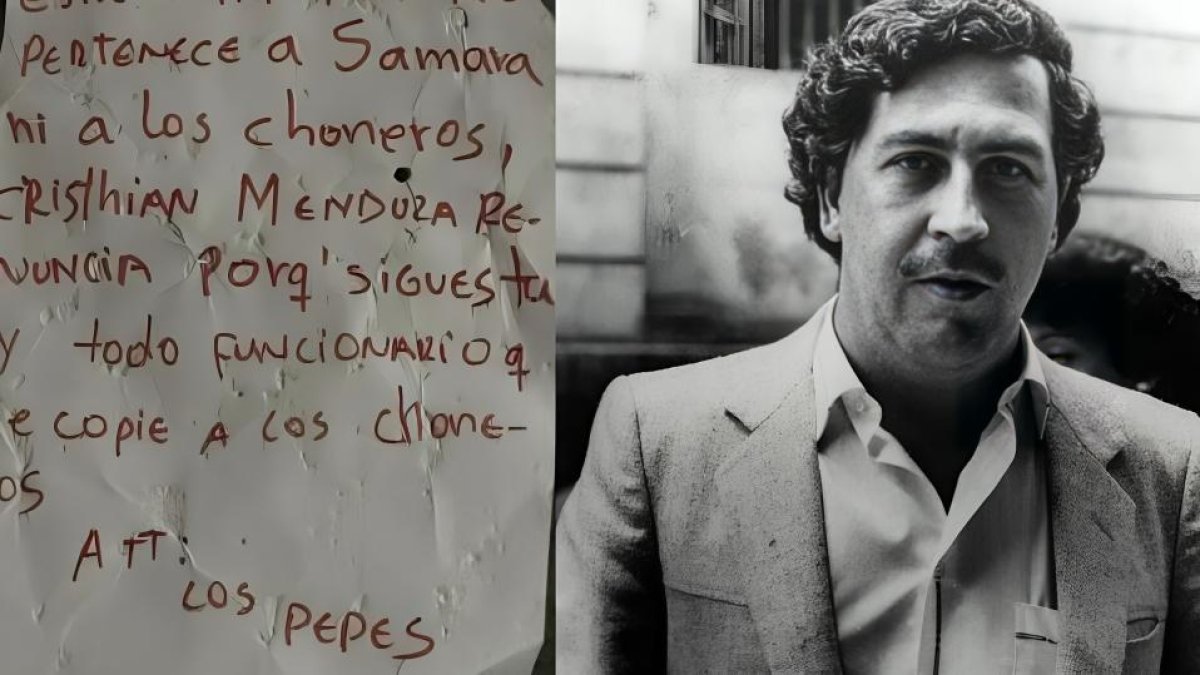 PERTENECE a Samara
ni a los choneros,
CRISTHIAN MENDOZA RE-
NUNCIA PORq' SIGUES tu
y todo FUNCIONARIO q
e copie A LOS chone-
os
ATT:
LOS PEPES